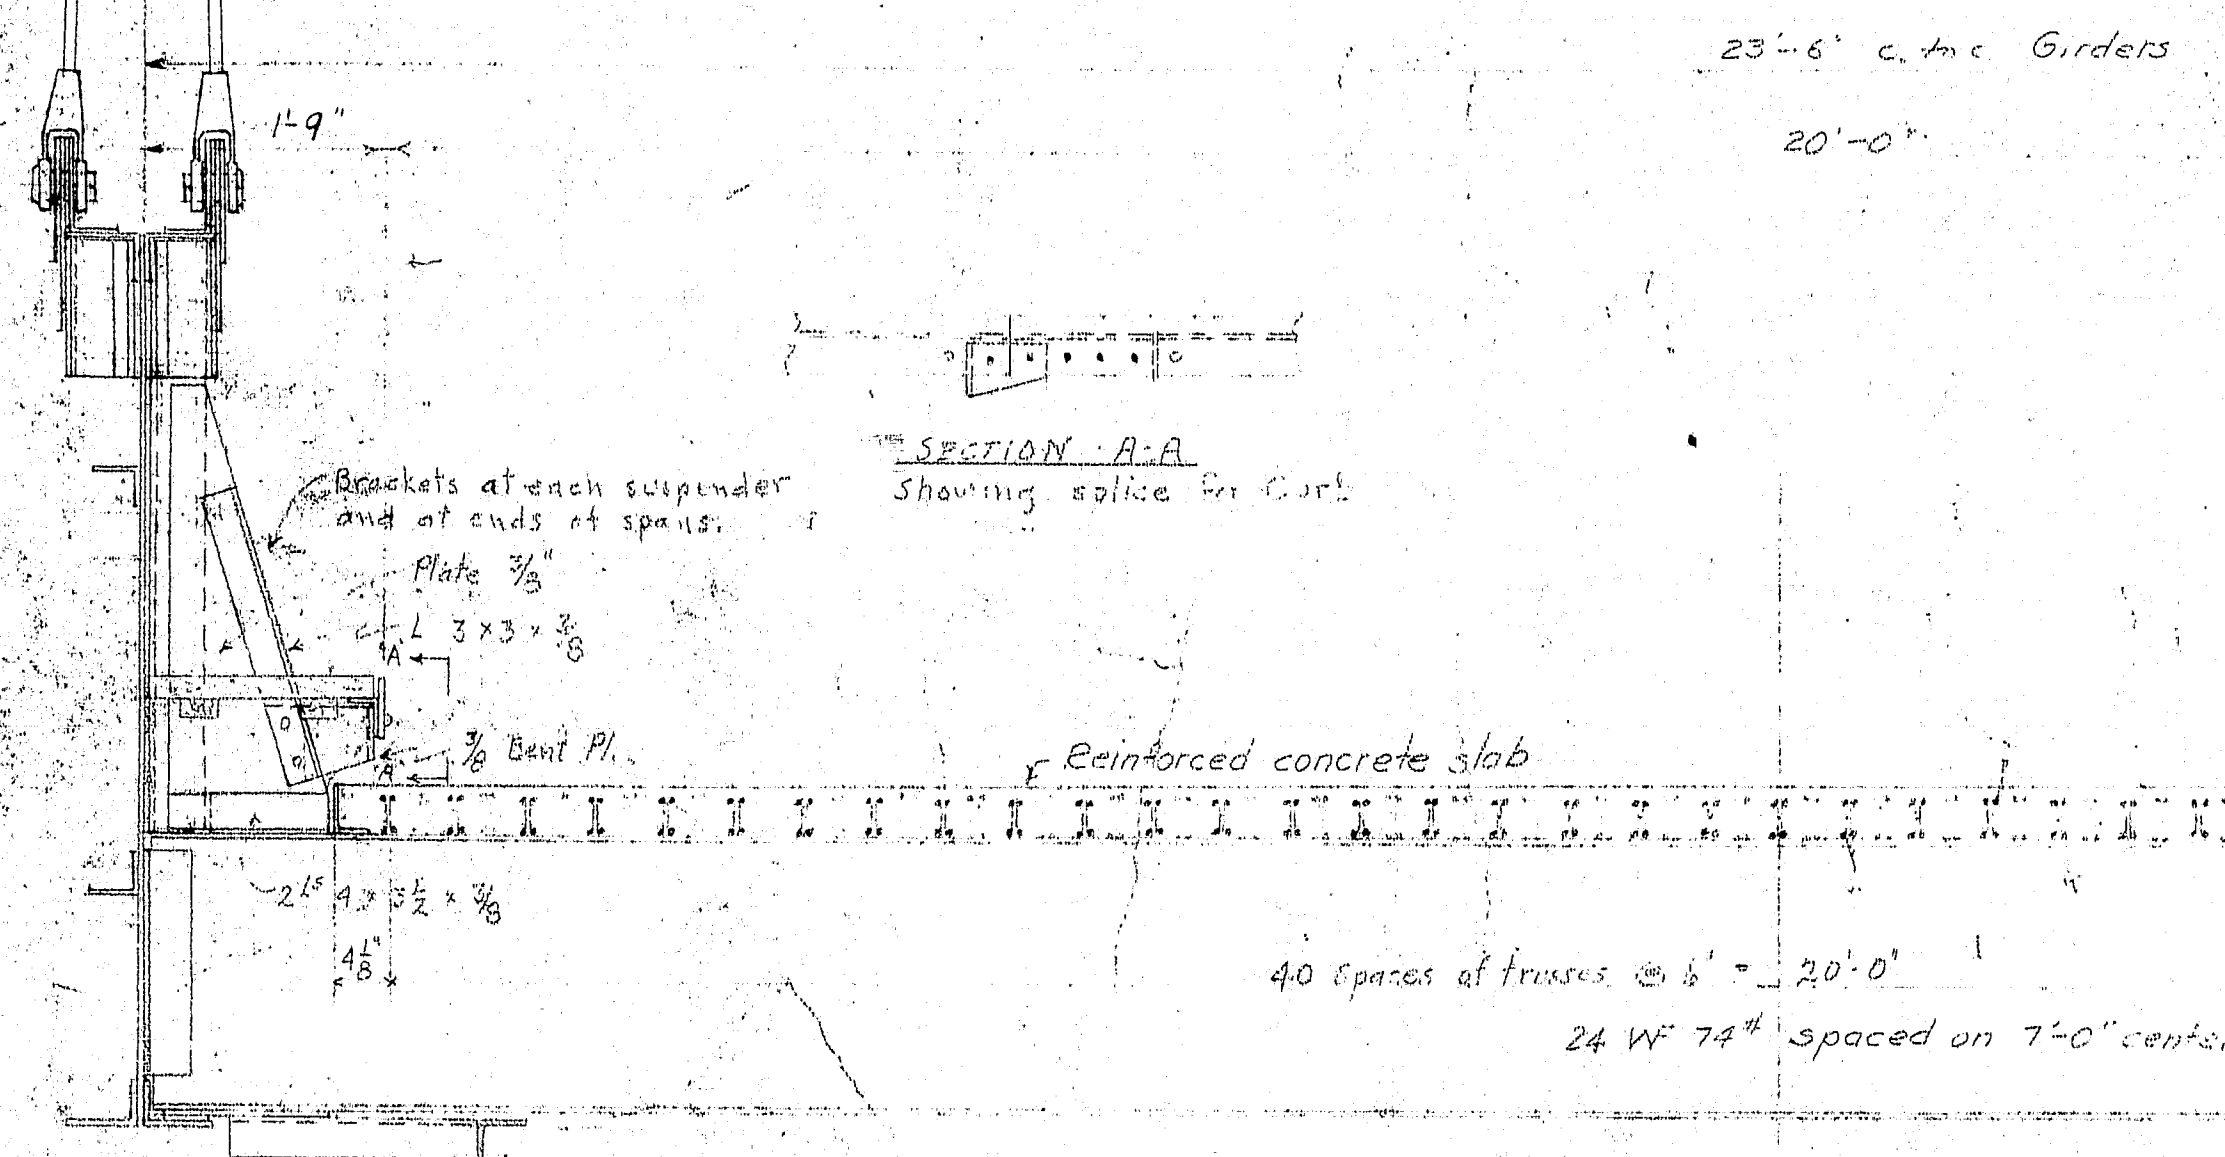 23'-6" c. to c Girders
1'-9"
20'-0"
SECTION A-A
Showing splice for Curb
Brackets at each suspender
and at ends of spans.
Plate 3/8"
L 3 x 3 x 3/8
A
3/8 Bent Pl.
A
Reinforced concrete slab
2 Ls 4 x 3 1/2 x 3/8
4 1/8"
40 spaces of trusses @ 6" = 20'-0"
24 WF 74# spaced on 7'-0"